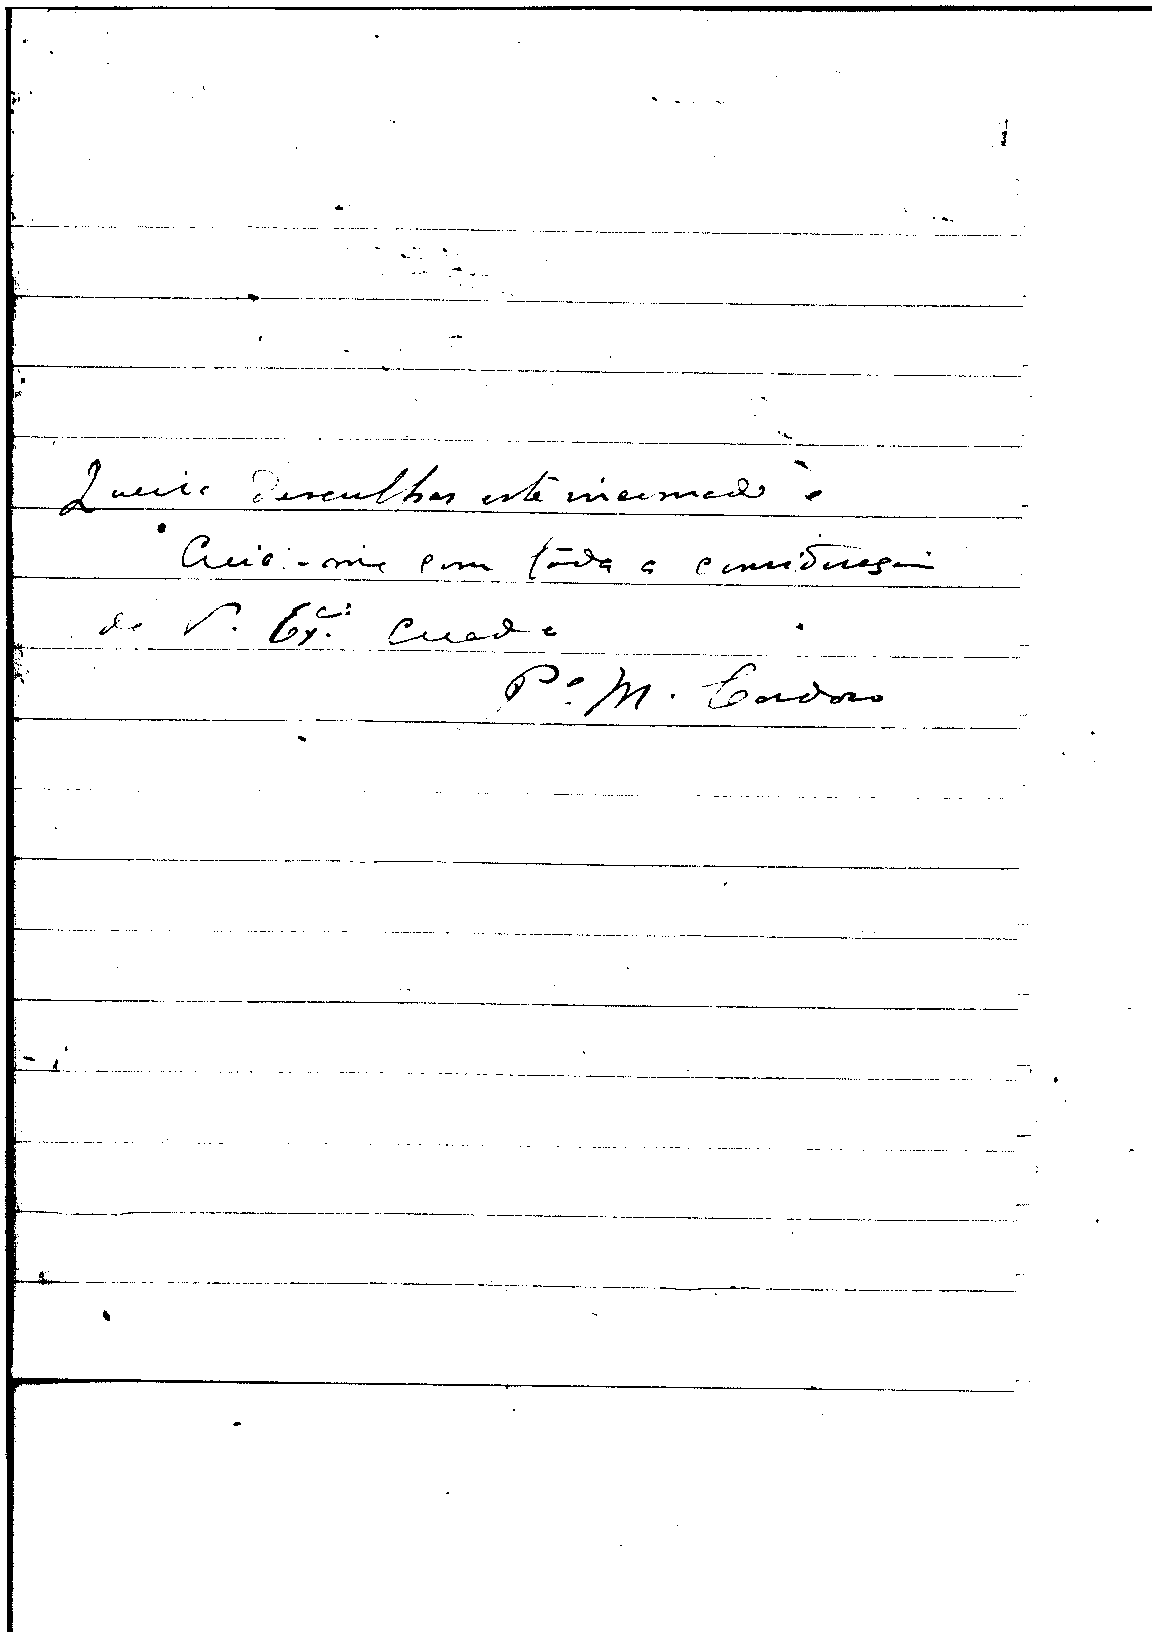 Queira desculpar este incomodo e
Creia-me com toda a consideração
de V. Ex.ci criado
P.e M. Cardoso